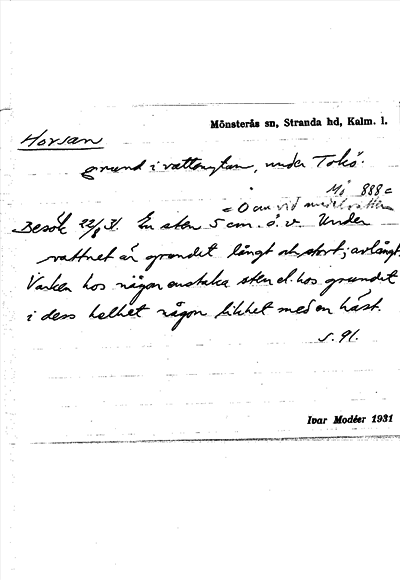 Mönsterås sn, Stranda hd, Kalm. l.
Horsan
grund i vattenytan, under Tokö.
Mö 888 c
= 0 cm vid medelvatten
Besök 22/8 31. En sten 5 cm. ö. v. Under
vattnet är grundet långt och stort; avlångt.
Varken hos någon enstaka sten el. hos grundet
i dess helhet någon likhet med en häst.
s. 91.
Ivar Modéer 1931